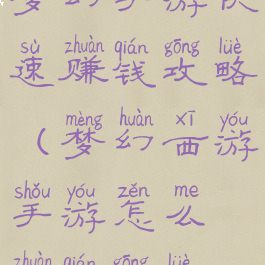 sù zhuàn qián gōng lüè
速赚钱攻略
mèng huàn xī yóu
(梦幻西游
shǒu yóu zěn me
手游怎么
zhuàn qián gōng lüè